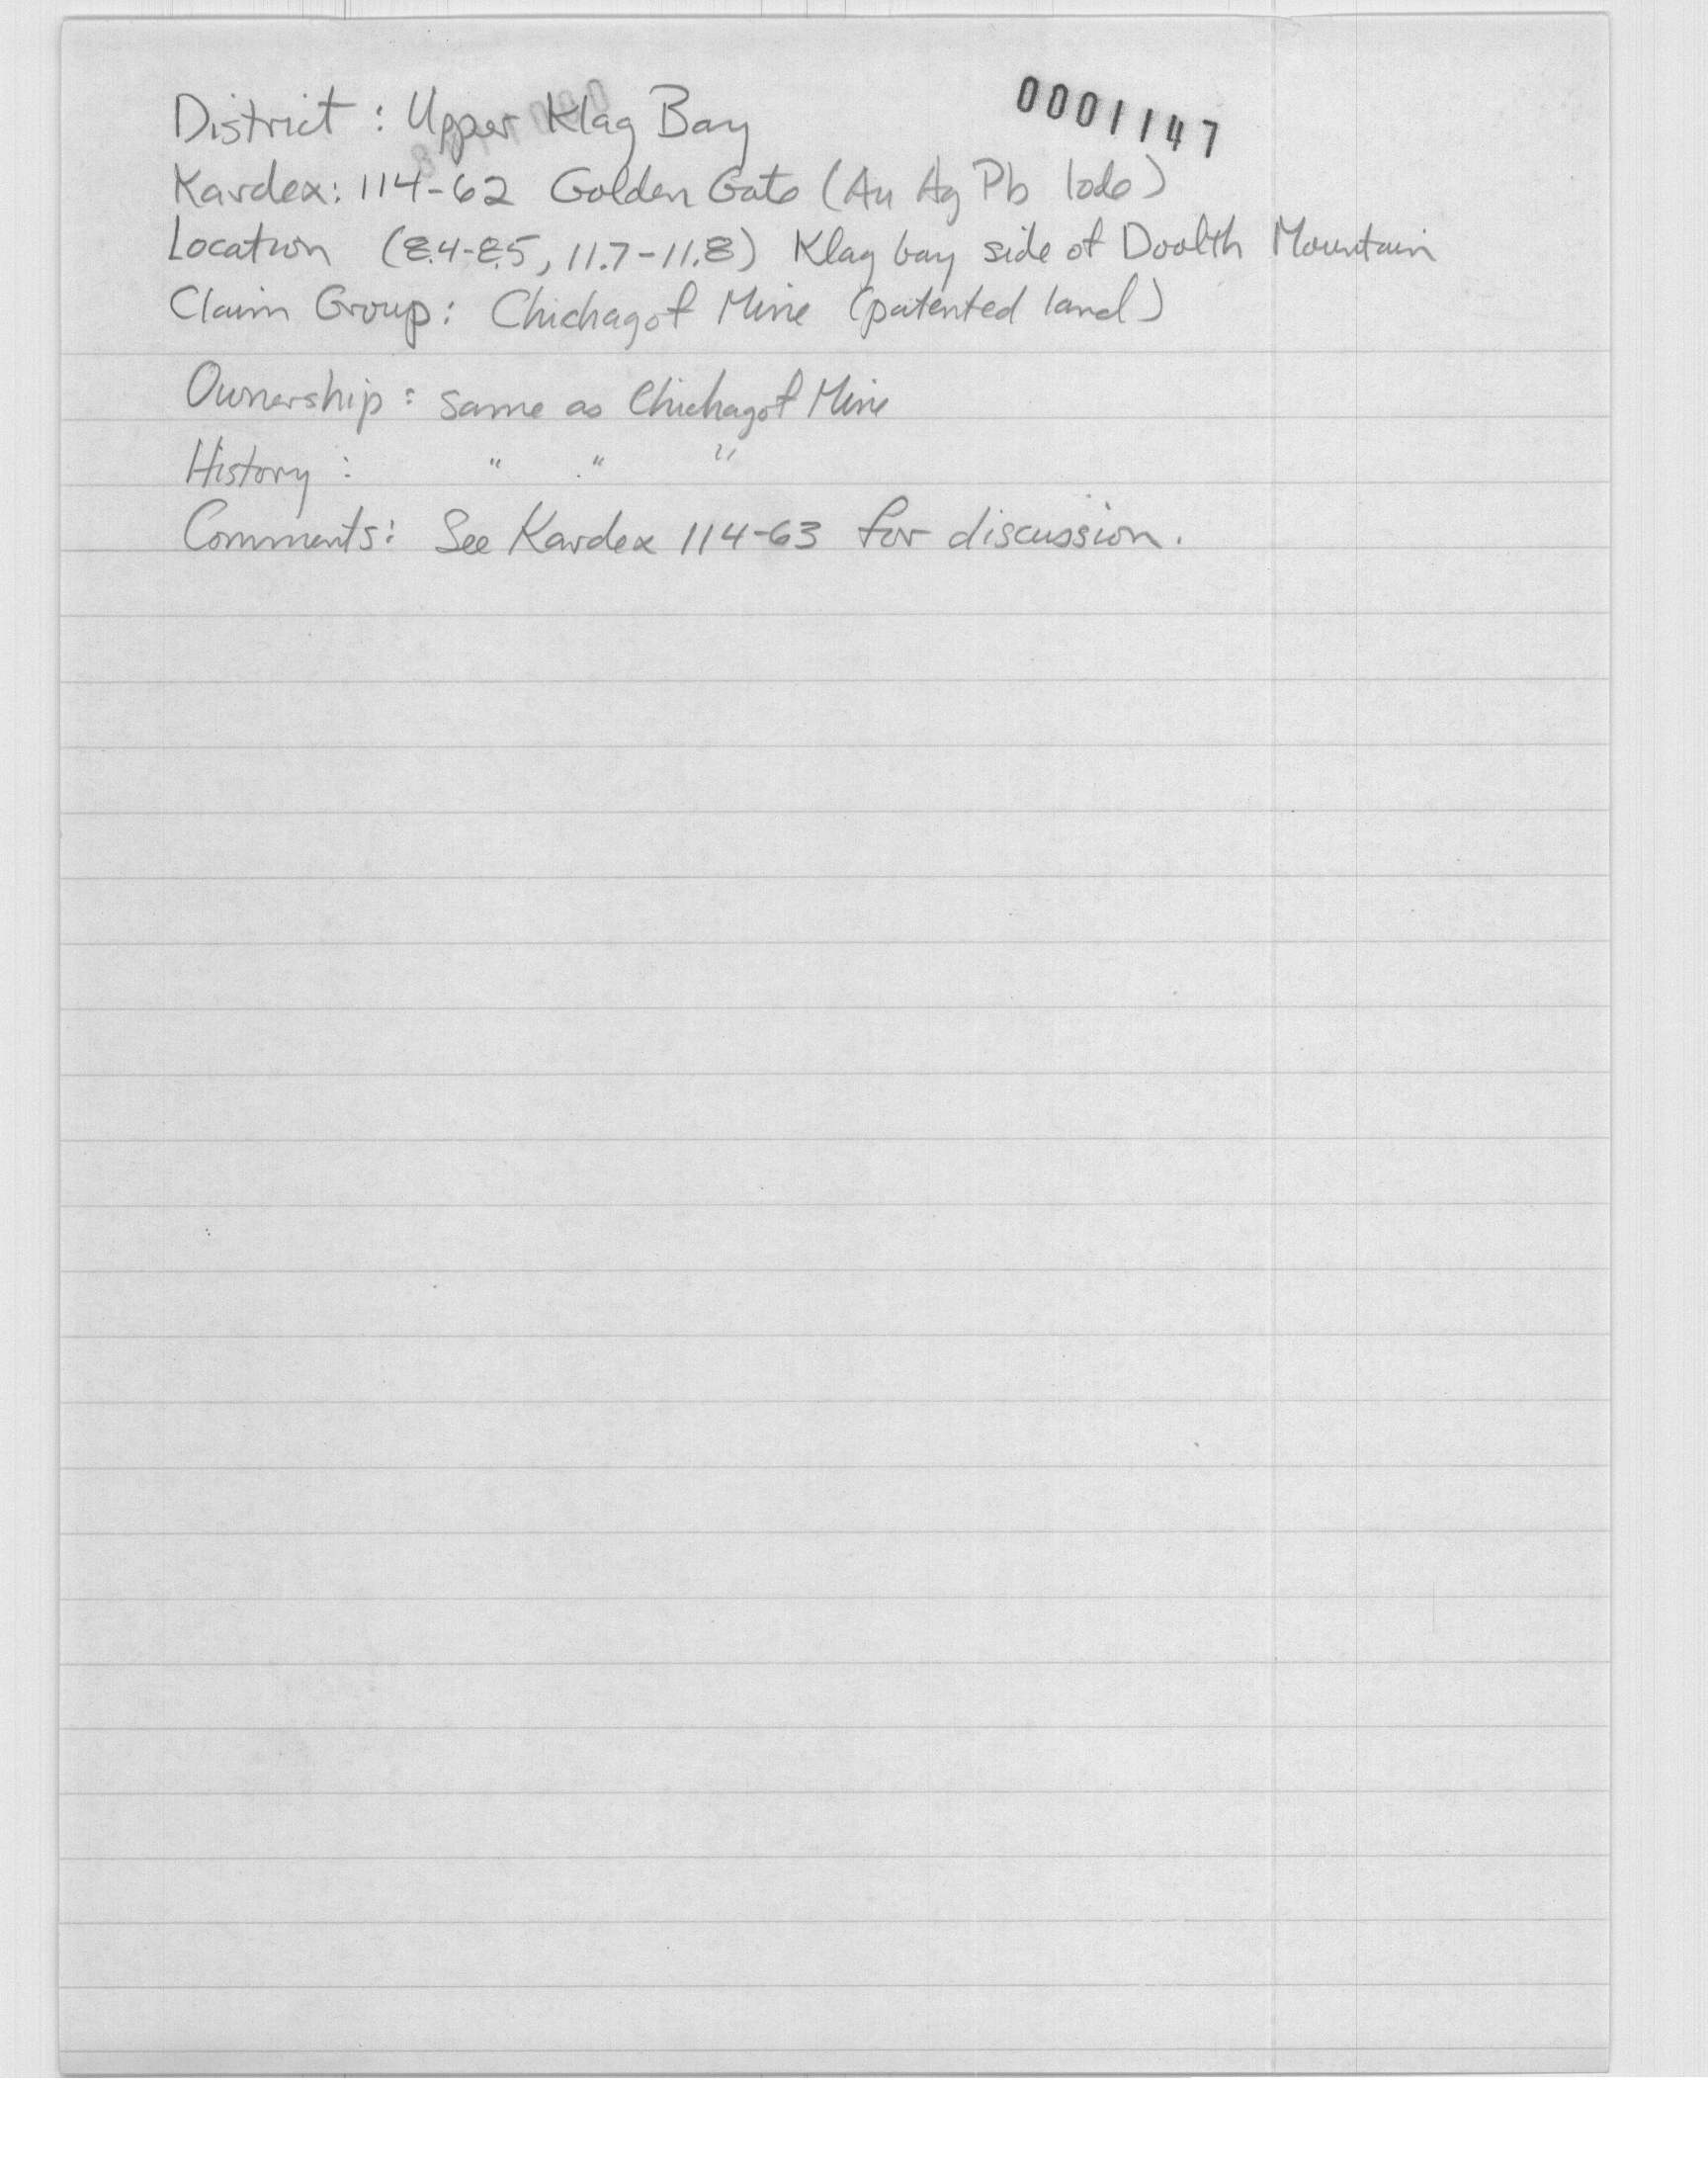 0001147
District : Upper Klag Bay
Kardex: 114-62 Golden Gate (Au Ag Pb lode)
Location (8.4-8.5, 11.7-11.8) Klag bay side of Doolth Mountain
Claim Group: Chichagof Mine (patented land)
Ownership : same as Chichagof Mine
History : " " "
Comments: See Kardex 114-63 for discussion.